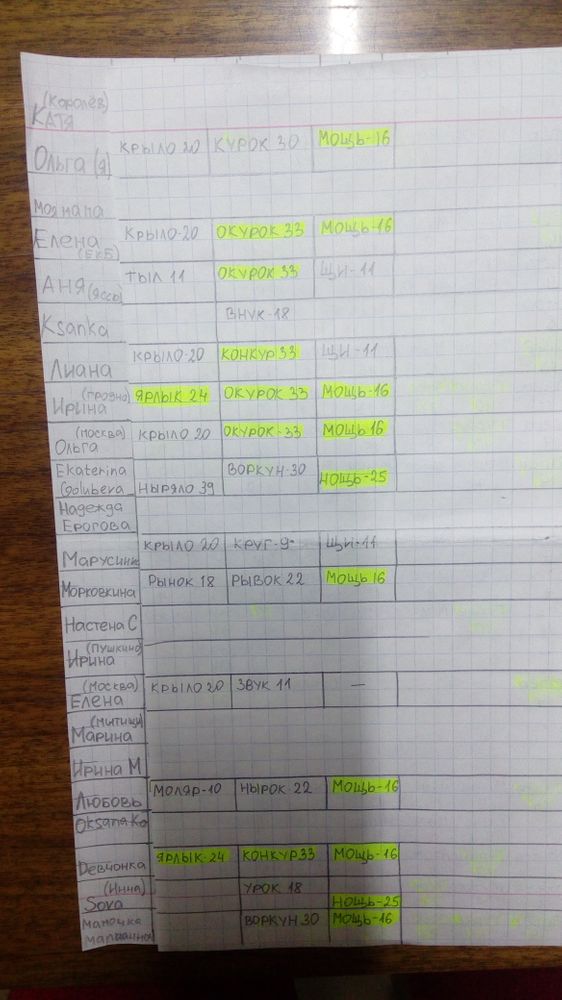 (Королёв)
КАТЯ
Ольга (я) КРЫЛО 20 КУРОК 30 МОЩЬ-16
МОЯ МАМА
Елена КРЫЛО-20 ОКУРОК 33 МОЩЬ-16
(ЕКБ)
АНЯ (Яссь) ТЫЛ 11 ОКУРОК 33 ЩИ-11
Ksanka ВНУК-18
Лиана КРЫЛО-20 КОНКУР 33 ЩИ-11
(Грозно)
Ирина ЯРЛЫК 24 ОКУРОК 33 МОЩЬ-16
(Москва)
Ольга КРЫЛО 20 ОКУРОК-33 МОЩЬ 16
Ekaterina
Golubeva НЫРЯЛО 39 ВОРКУН-30 НОЩЬ-25
Надежда
Ерогова
Марусины КРЫЛО 20 КРУГ-9 ЩИ-11
Морковкина РЫНОК 18 РЫВОК 22 МОЩЬ 16
Настена С
(Пушкино)
Ирина
(Москва)
Елена КРЫЛО 20 ЗВУК 11 —
(Митищи)
Марина
Ирина М
Любовь МОЛЯР-10 НЫРОК 22 МОЩЬ-16
Oksana Ko
Девчонка ЯРЛЫК-24 КОНКУР 33 МОЩЬ-16
(Инна) УРОК 18
Sova НОЩЬ-25
Мамочка ВОРКУН 30 МОЩЬ-16